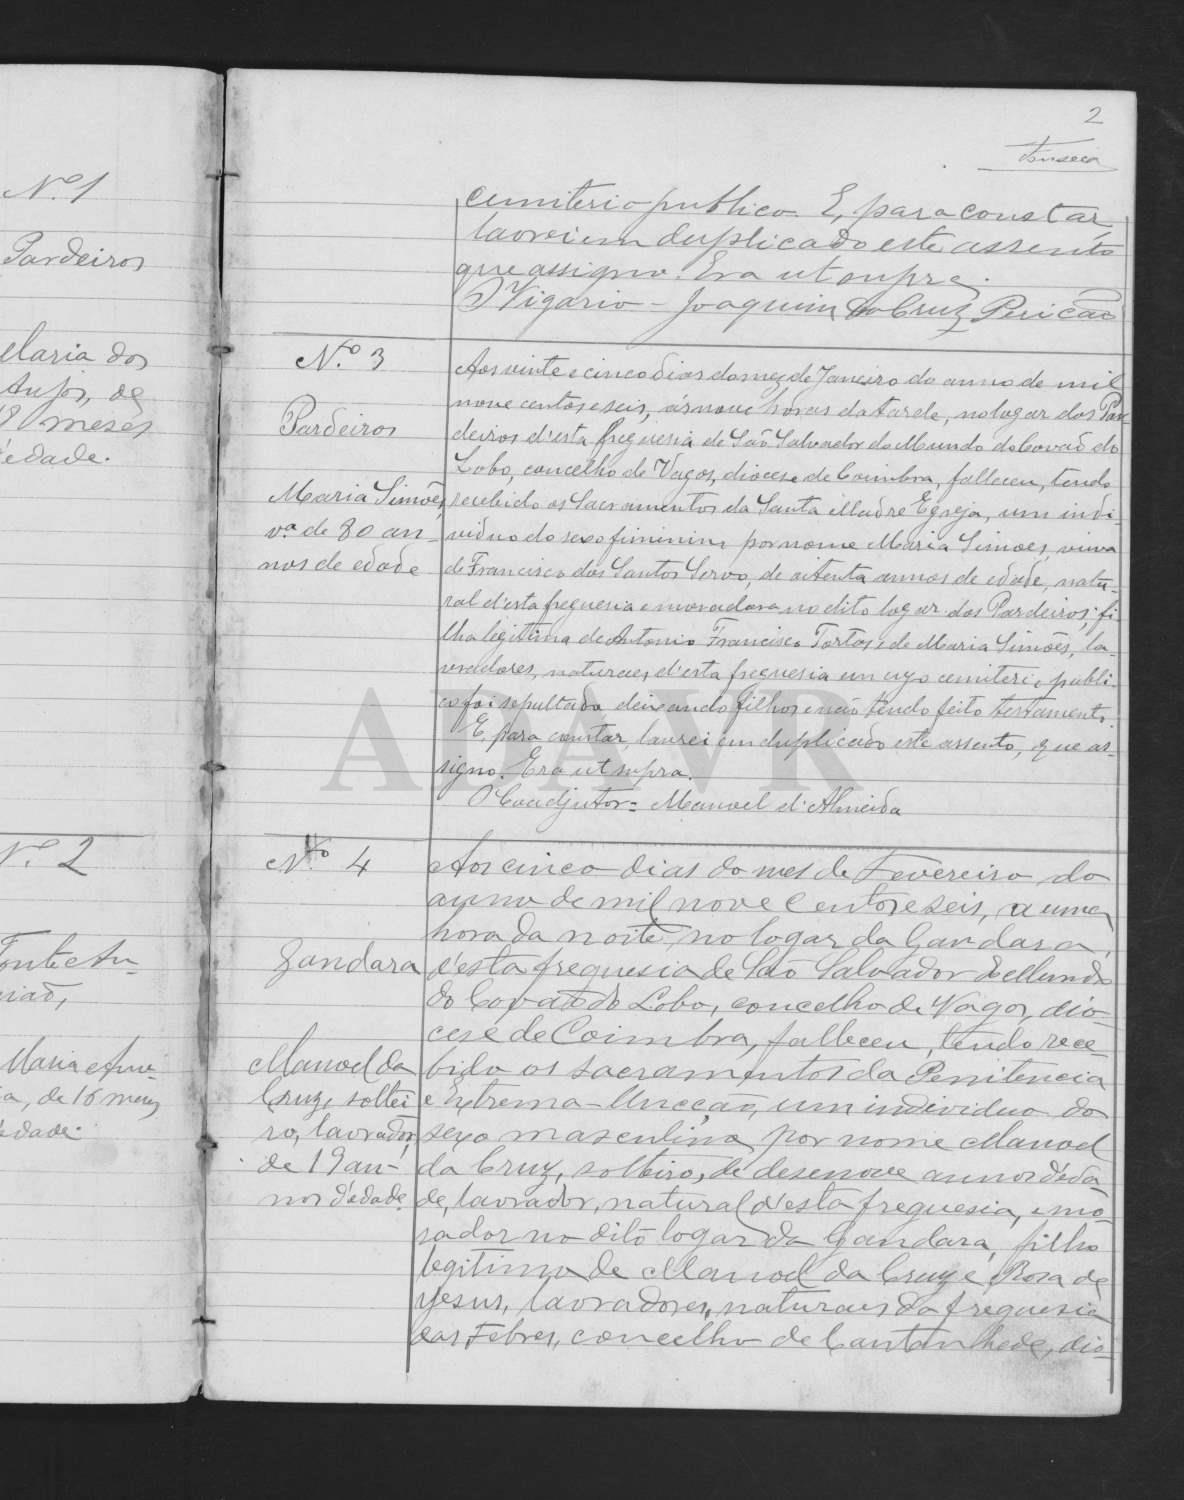 Nº 1
Pardeiros
Maria dos
Anjos, de
18 meses
d'edade.
Nº 2
Fonte An-
gião,
Maria Ame-
a, de 16 meses
d'edade.
2
Fonseca
cemiterio publico. E, para constar
lavrei em duplicado este assento
que assigno. Era ut supra.
O Vigario - Joaquim da Cruz Pericão
Nº 3
Pardeiros
Maria Simões,
vª de 80 an-
nos de edade
Aos vinte e cinco dias do mez de Janeiro do anno de mil
nove centos e seis, ás nove horas da tarde, no logar dos Par-
deiros d'esta freguesia de São Salvador do Mundo do Covão do
Lobo, concelho de Vagos, diocese de Coimbra, falleceu, tendo
recebido os Sacramentos da Santa Madre Egreja, um indi-
viduo do sexo feminino por nome Maria Simões, viuva
de Francisco dos Santos Servo, de oitenta annos de edade, natu-
ral d'esta freguesia e moradora no dito logar dos Pardeiros, fi-
lha legitima de Antonio Francisco Tortas e de Maria Simões, la-
vradores, naturaes d'esta freguesia em cujo cemiterio publi-
co foi sepultada, deixando filhos e não tendo feito testamento.
E, para constar, lavrei em duplicado este assento, que as-
signo. Era ut supra.
O Coadjutor = Manuel d'Almeida
Nº 4
Gandara
Manoel da
Cruz, soltei
ro, lavrador,
de 19 an-
nos d'edade.
Aos cinco dias do mes de Fevereiro do
anno de mil nove centos e seis, a uma
hora da noite, no logar da Gandara,
d'esta freguesia de São Salvador do Mundo
do Covão do Lobo, concelho de Vagos, dio-
cese de Coimbra, falleceu, tendo rece-
bido os sacramentos da Penitencia
e Extrema-Uncção, um individuo do
sexo masculino por nome Manoel
da Cruz, solteiro, de desenove annos d'eda-
de, lavrador, natural d'esta freguesia, e mo-
rador no dito logar da Gandara, filho
legitimo de Manoel da Cruz e Rosa de
Jesus, lavradores, naturaes da freguesia
das Febres, concelho de Cantanhede, dio-
ADAVR